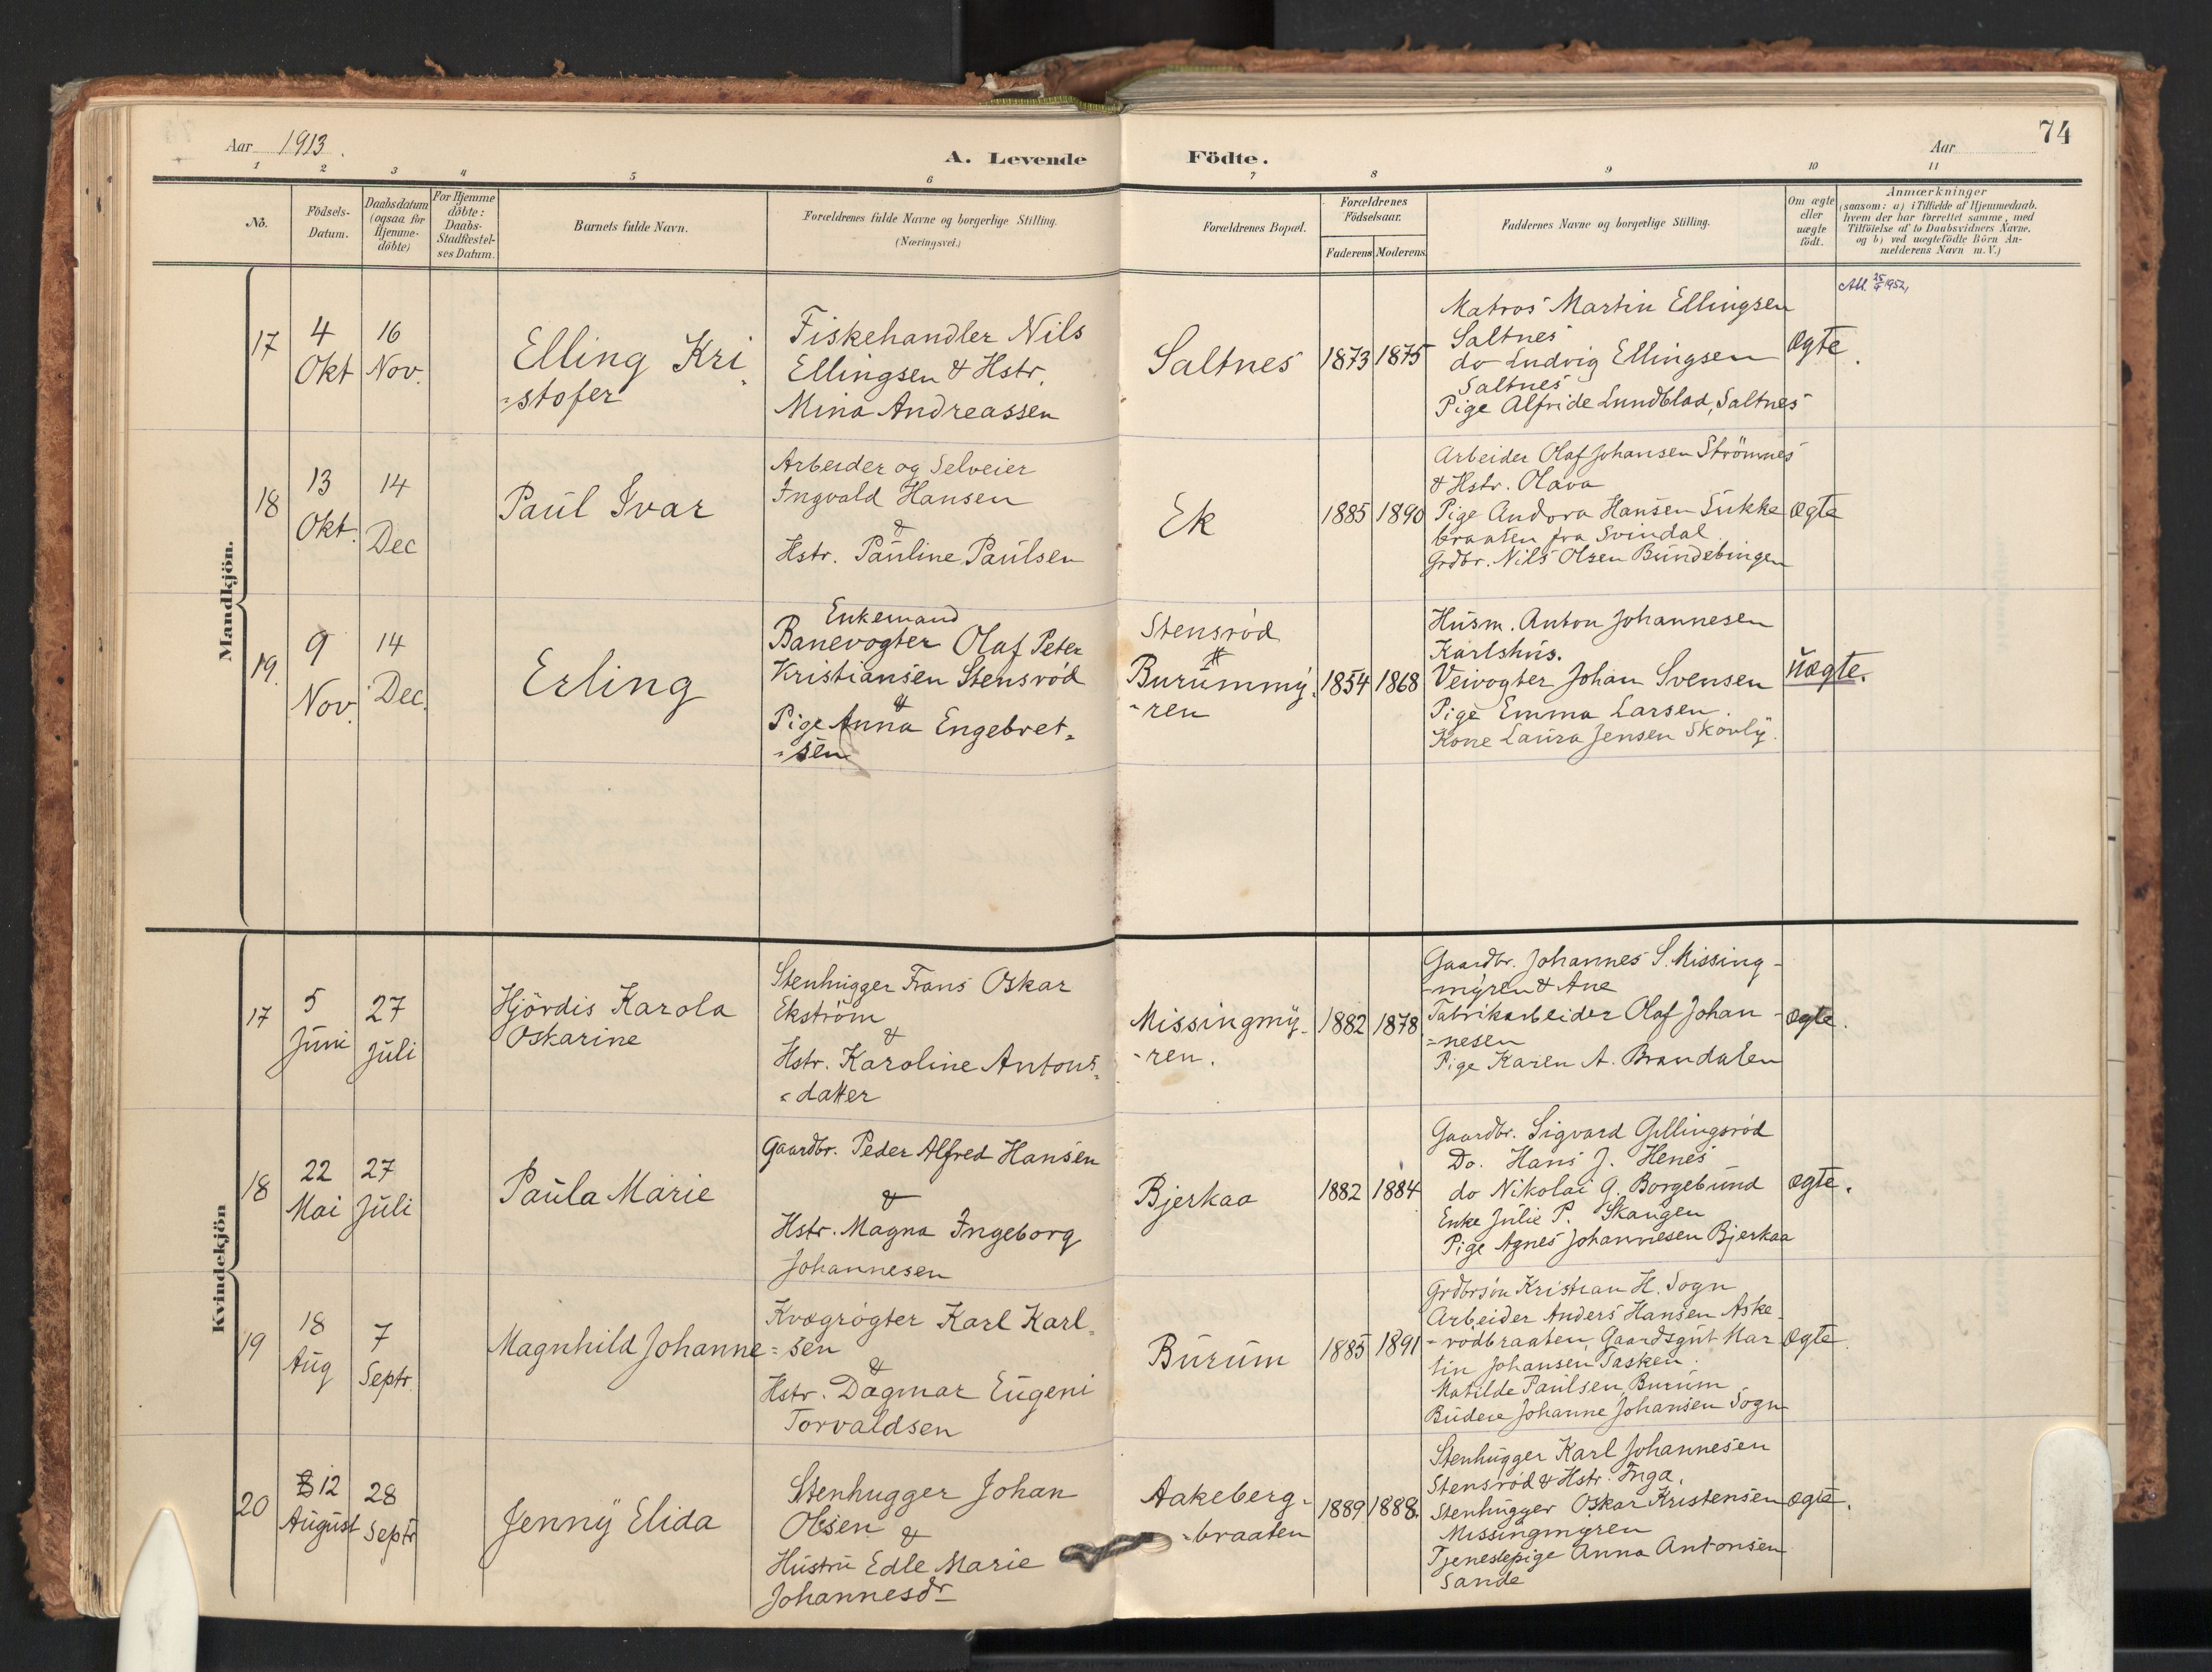 74
Aar 1913.
A. Levende Födte.
Aar
1 2 3 4 5 6 7 8 9 10 11
No.
Födsels-
Datum.
Daabsdatum
(ogsaa for
Hjemme-
döbte)
For Hjemme
döbte:
Daabs-
Stadfæstel-
ses Datum.
Barnets fulde Navn.
Forældrenes fulde Navne og borgerlige Stilling.
(Næringsvei.)
Forældrenes Bopæl.
Forældrenes
Födselsaar.
Faderens Moderens
Faddernes Navne og borgerlige Stilling.
Om ægte
eller
uægte
födt.
Anmærkninger
(saasom: a) i Tilfælde af Hjemmedaab,
hvem der har forrettet samme, med
Tilföielse af to Daabsvidners Navne,
og b) ved uægtefödte Börn An-
melderens Navn m. V.)
Mandkjön.
17
4
Okt
16
Nov.
Elling Kri
=stofer
Fiskehandler Nils
Ellingsen & Hstr.
Mina Andreassen
Saltnes
1873 1875
Matros Martin Ellingsen
Saltnes
do Ludvig Ellingsen
Saltnes
Pige Alfride Lundblad, Saltnes
Ægte.
1952,
18
13
Okt.
14
Dec
Paul Ivar
Arbeider og Selveier
Ingvald Hansen
&
Hstr. Pauline Paulsen
Ek
1885 1890
Arbeider Olaf Johansen Strömnes
& Hstr. Olava
Pige Andora Hansen Sukke
braaten fra Svindal
Grdbr. Nils Olsen Bundebingen
Ægte
19.
9
Nov.
14
Dec.
Erling
Enkemand
Banevogter Olaf Peter
Kristiansen Stensröd
&
Pige Anna Engebret=
=sen
Stensröd
#
Burummy=
=ren
1854 1868
Husm. Anton Johannesen
Karlshus.
Veivogter Johan Svensen
Pige Emma Larsen.
Kone Laura Jensen Skovly.
Uægte.
Kvindekjön
17
5
Juni
27
Juli
Hjördis Karola
Oskarine
Stenhugger Frans Oskar
Ekström
&
Hstr. Karoline Antons=
=datter
Missingmy-
-ren.
1882 1878
Gaardbr. Johannes S. Missing-
-myren & Ane
Fabrikarbeider Olaf Johan-
=nesen
Pige Karen A. Brandalen
Ægte.
18
22
Mai
27
Juli
Paula Marie
Gaardbr. Peder Alfred Hansen
&
Hstr. Magna Ingeborg
Johannesen
Bjerkaa
1882 1884
Gaardbr. Sigvard Gillingsröd
Do. Hans J. Henes
do Nikolai G. Borgebund
Enke Julie P. Skaugen
Pige Agnes Johannesen Bjerkaa
Ægte.
19
18
Aug
7
Septr.
Magnhild Johanne
Kvægrögter Karl Karl=
=sen
&
Hstr. Dagmar Eugeni
Torvaldsen
Burum
1885 1891
Grdbrsön Kristian H. Sogn
Arbeider Anders Hansen Aske
-rödbraaten, Gaardsgut Mar
tin Johansen Tasken.
Matilde Paulsen, Burum
Budeie Johanne Johansen Sogn
Ægte.
20
12
August
28
Septr
Jenny Elida
Stenhugger Johan
Olsen &
Hustru Edle Marie
Johannesdr
Aakeberg-
-braaten
1889 1888.
Stenhugger Karl Johannesen
Stensröd & Hstr. Inga.
Stenhugger Oskar Kristensen
Missingmyren
Tjenestepige Anna Antonsen
Sande
Ægte.